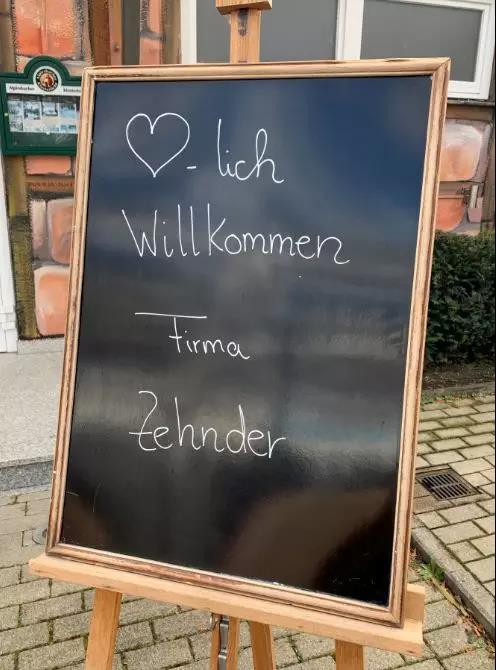 ♡-lich
Willkommen
Firma
Zehnder